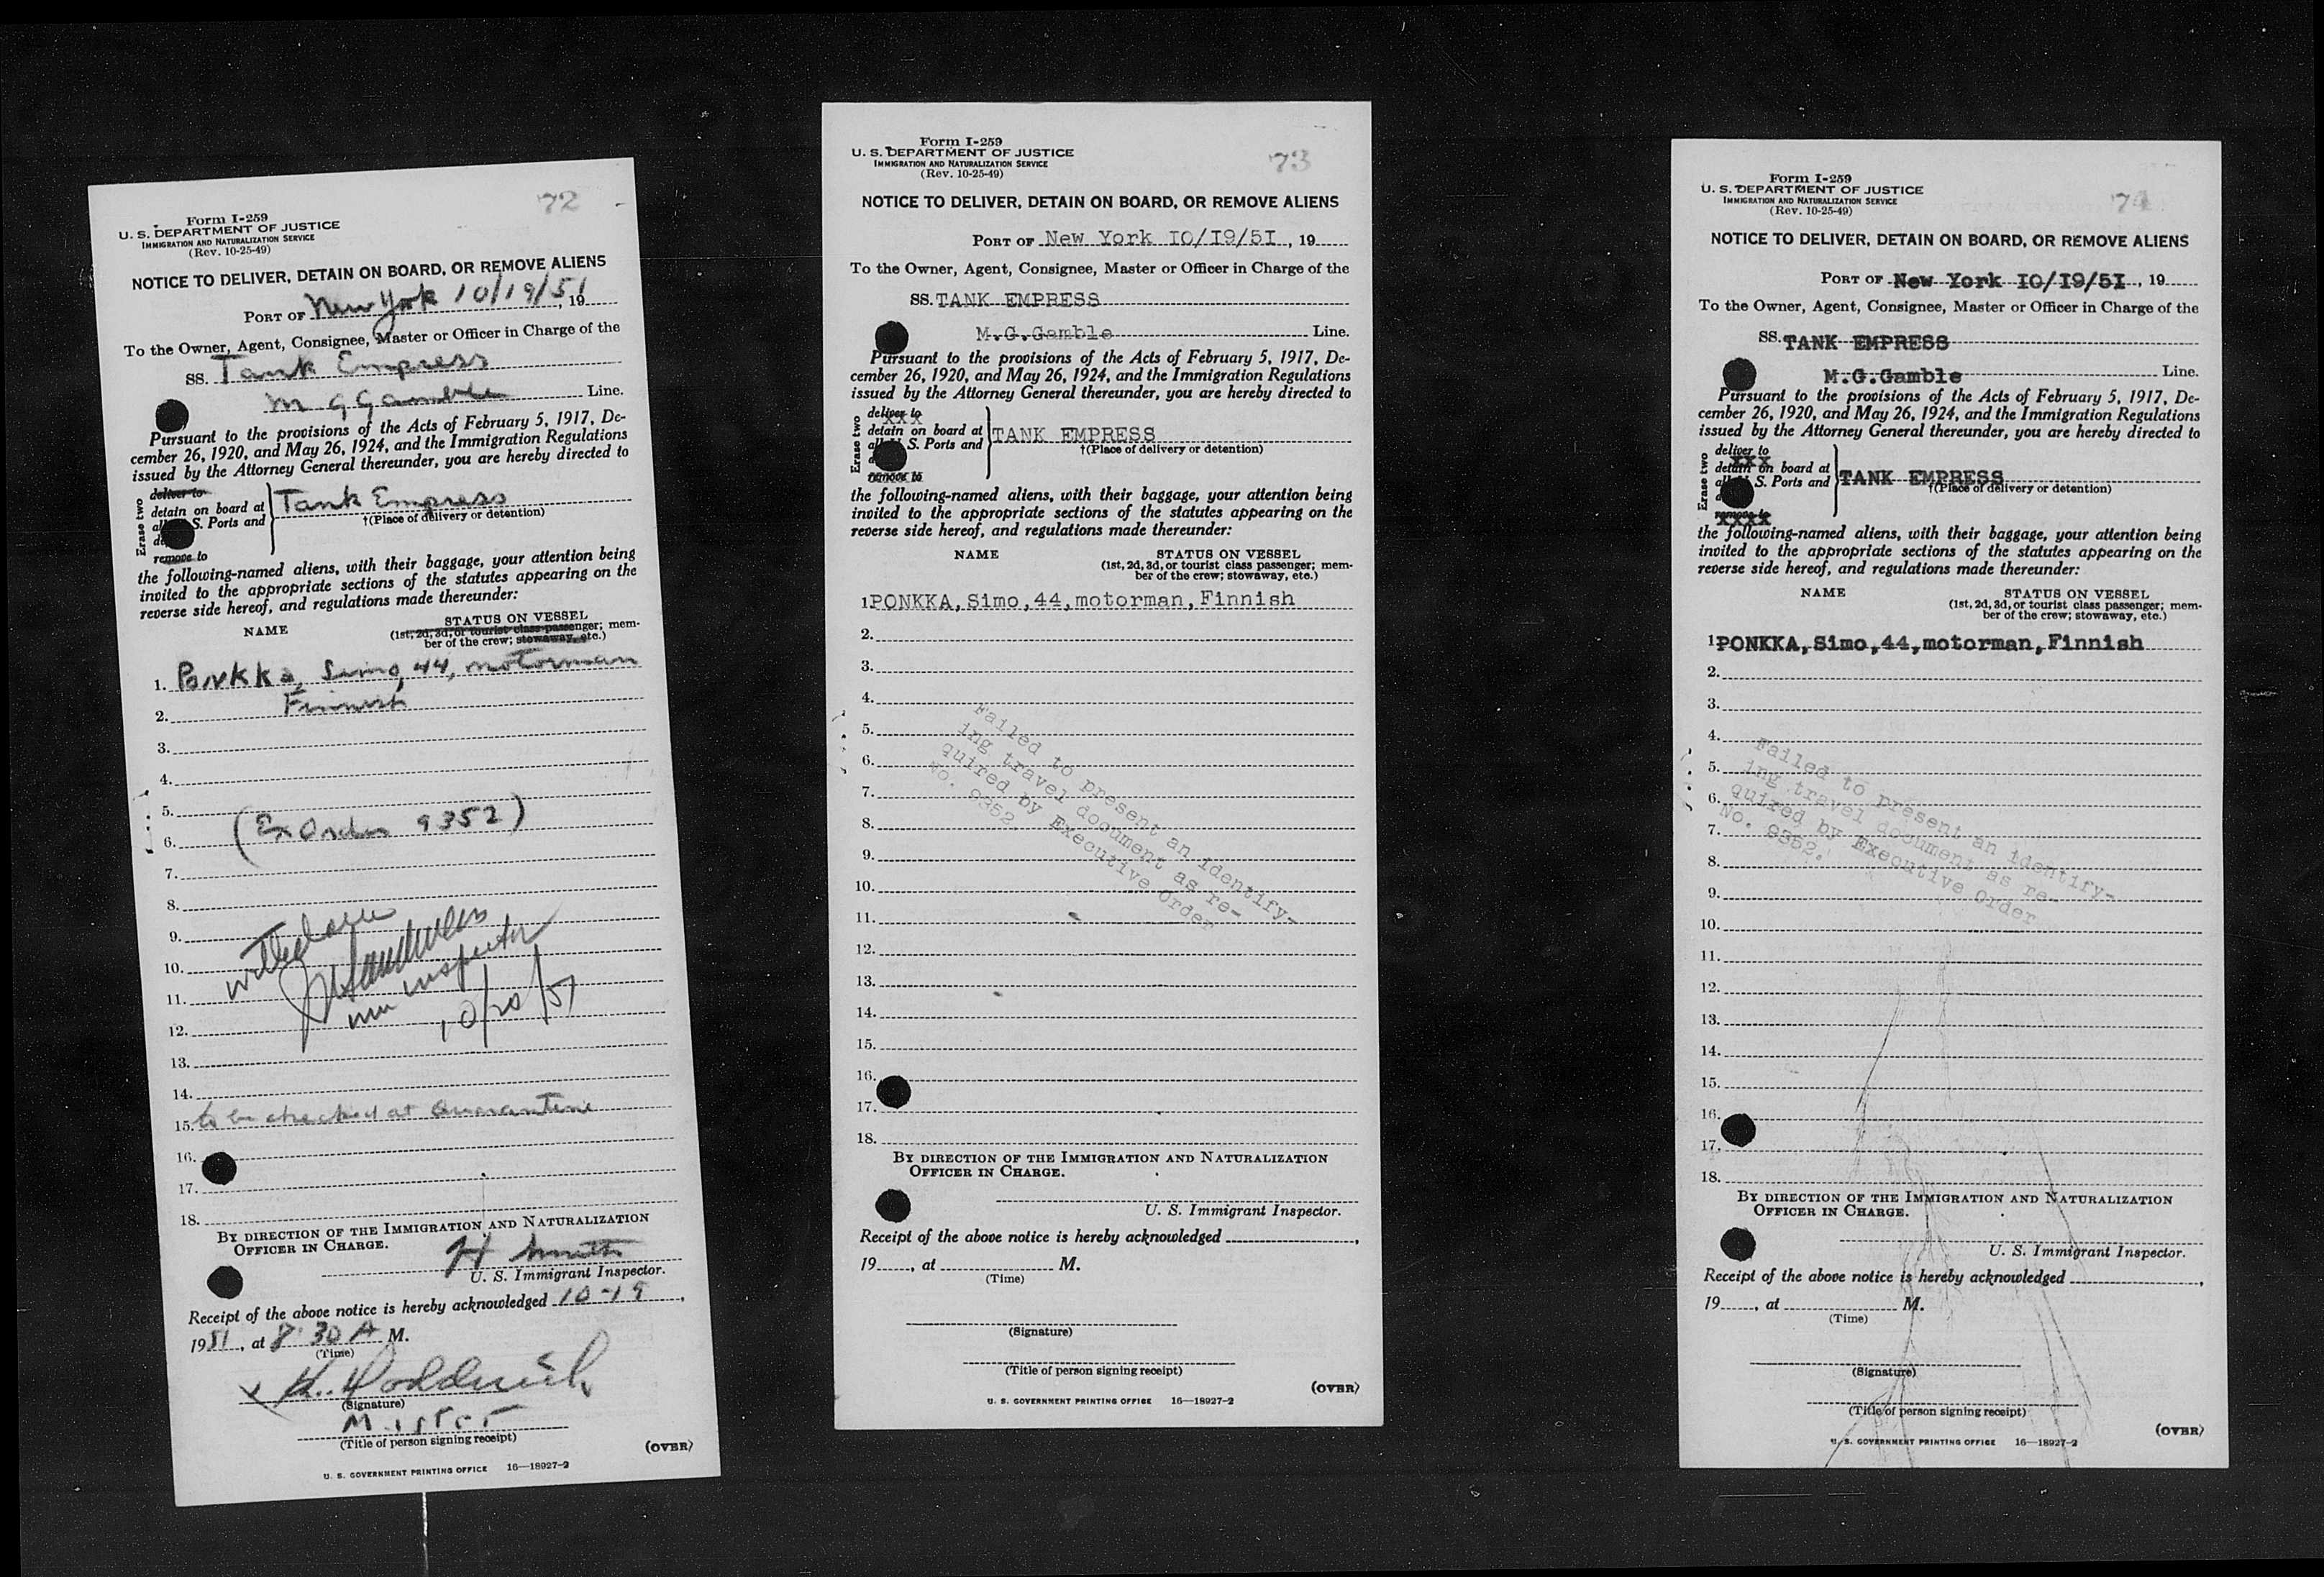 72
Form I-259
U. S. DEPARTMENT OF JUSTICE
IMMIGRATION AND NATURALIZATION SERVICE
(Rev. 10-25-49)
NOTICE TO DELIVER, DETAIN ON BOARD, OR REMOVE ALIENS
PORT OF New York 10/19/51, 19
To the Owner, Agent, Consignee, Master or Officer in Charge of the
SS. Tank Empress
M G Gamble Line.
Pursuant to the provisions of the Acts of February 5, 1917, De-
cember 26, 1920, and May 26, 1924, and the Immigration Regulations
issued by the Attorney General thereunder, you are hereby directed to
Erase two
deliver to
detain on board at
all U. S. Ports and
Tank Empress
†(Place of delivery or detention)
remove to
the following-named aliens, with their baggage, your attention being
invited to the appropriate sections of the statutes appearing on the
reverse side hereof, and regulations made thereunder:
NAME
STATUS ON VESSEL
(1st, 2d, 3d, or tourist class passenger; mem-
ber of the crew; stowaway, etc.)
1. Ponkka, Simo, 44, motorman
2. Finnish
3.
4.
5.
6. (Ex Order 9352)
7.
8.
9.
10.
11. inspector
12. 10/20/51
13.
14.
15. to be checked at Quarantine
16.
17.
18.
BY DIRECTION OF THE IMMIGRATION AND NATURALIZATION
OFFICER IN CHARGE.
H Smith
U. S. Immigrant Inspector.
Receipt of the above notice is hereby acknowledged 10-19,
1951, at 8 30 A M.
(Time)
(Signature)
(Title of person signing receipt)
(OVER)
U. S. GOVERNMENT PRINTING OFFICE 16—18927-2
73
Form I-259
U. S. DEPARTMENT OF JUSTICE
IMMIGRATION AND NATURALIZATION SERVICE
(Rev. 10-25-49)
NOTICE TO DELIVER, DETAIN ON BOARD, OR REMOVE ALIENS
PORT OF New York IO/I9/5I, 19
To the Owner, Agent, Consignee, Master or Officer in Charge of the
SS. TANK EMPRESS
M.G.Gamble Line.
Pursuant to the provisions of the Acts of February 5, 1917, De-
cember 26, 1920, and May 26, 1924, and the Immigration Regulations
issued by the Attorney General thereunder, you are hereby directed to
Erase two
deliver to
xxx
detain on board at
all U. S. Ports and
TANK EMPRESS
†(Place of delivery or detention)
remove to
the following-named aliens, with their baggage, your attention being
invited to the appropriate sections of the statutes appearing on the
reverse side hereof, and regulations made thereunder:
NAME
STATUS ON VESSEL
(1st, 2d, 3d, or tourist class passenger; mem-
ber of the crew; stowaway, etc.)
1. PONKKA, Simo, 44, motorman, Finnish
2.
3.
4.
5.
6.
7.
8.
9.
10.
11.
12.
13.
14.
15.
16.
17.
18.
Failed to present an identify-
ing travel document as re-
quired by Executive Order
No. 9352
BY DIRECTION OF THE IMMIGRATION AND NATURALIZATION
OFFICER IN CHARGE.
U. S. Immigrant Inspector.
Receipt of the above notice is hereby acknowledged ,
19, at M.
(Time)
(Signature)
(Title of person signing receipt)
(OVER)
U. S. GOVERNMENT PRINTING OFFICE 16—18927-2
74
Form I-259
U. S. DEPARTMENT OF JUSTICE
IMMIGRATION AND NATURALIZATION SERVICE
(Rev. 10-25-49)
NOTICE TO DELIVER, DETAIN ON BOARD, OR REMOVE ALIENS
PORT OF New York IO/I9/5I, 19
To the Owner, Agent, Consignee, Master or Officer in Charge of the
SS. TANK EMPRESS
M.G.Gamble Line.
Pursuant to the provisions of the Acts of February 5, 1917, De-
cember 26, 1920, and May 26, 1924, and the Immigration Regulations
issued by the Attorney General thereunder, you are hereby directed to
Erase two
deliver to
xxx
detain on board at
all U. S. Ports and
TANK EMPRESS
†(Place of delivery or detention)
remove to
xxxx
the following-named aliens, with their baggage, your attention being
invited to the appropriate sections of the statutes appearing on the
reverse side hereof, and regulations made thereunder:
NAME
STATUS ON VESSEL
(1st, 2d, 3d, or tourist class passenger; mem-
ber of the crew; stowaway, etc.)
1 PONKKA, Simo, 44, motorman, Finnish
2.
3.
4.
5.
6.
7.
8.
9.
10.
11.
12.
13.
14.
15.
16.
17.
18.
Failed to present an identify-
ing travel document as re-
quired by Executive Order
No. 9352.
BY DIRECTION OF THE IMMIGRATION AND NATURALIZATION
OFFICER IN CHARGE.
U. S. Immigrant Inspector.
Receipt of the above notice is hereby acknowledged ,
19, at M.
(Time)
(Signature)
(Title of person signing receipt)
(OVER)
U. S. GOVERNMENT PRINTING OFFICE 16—18927-2